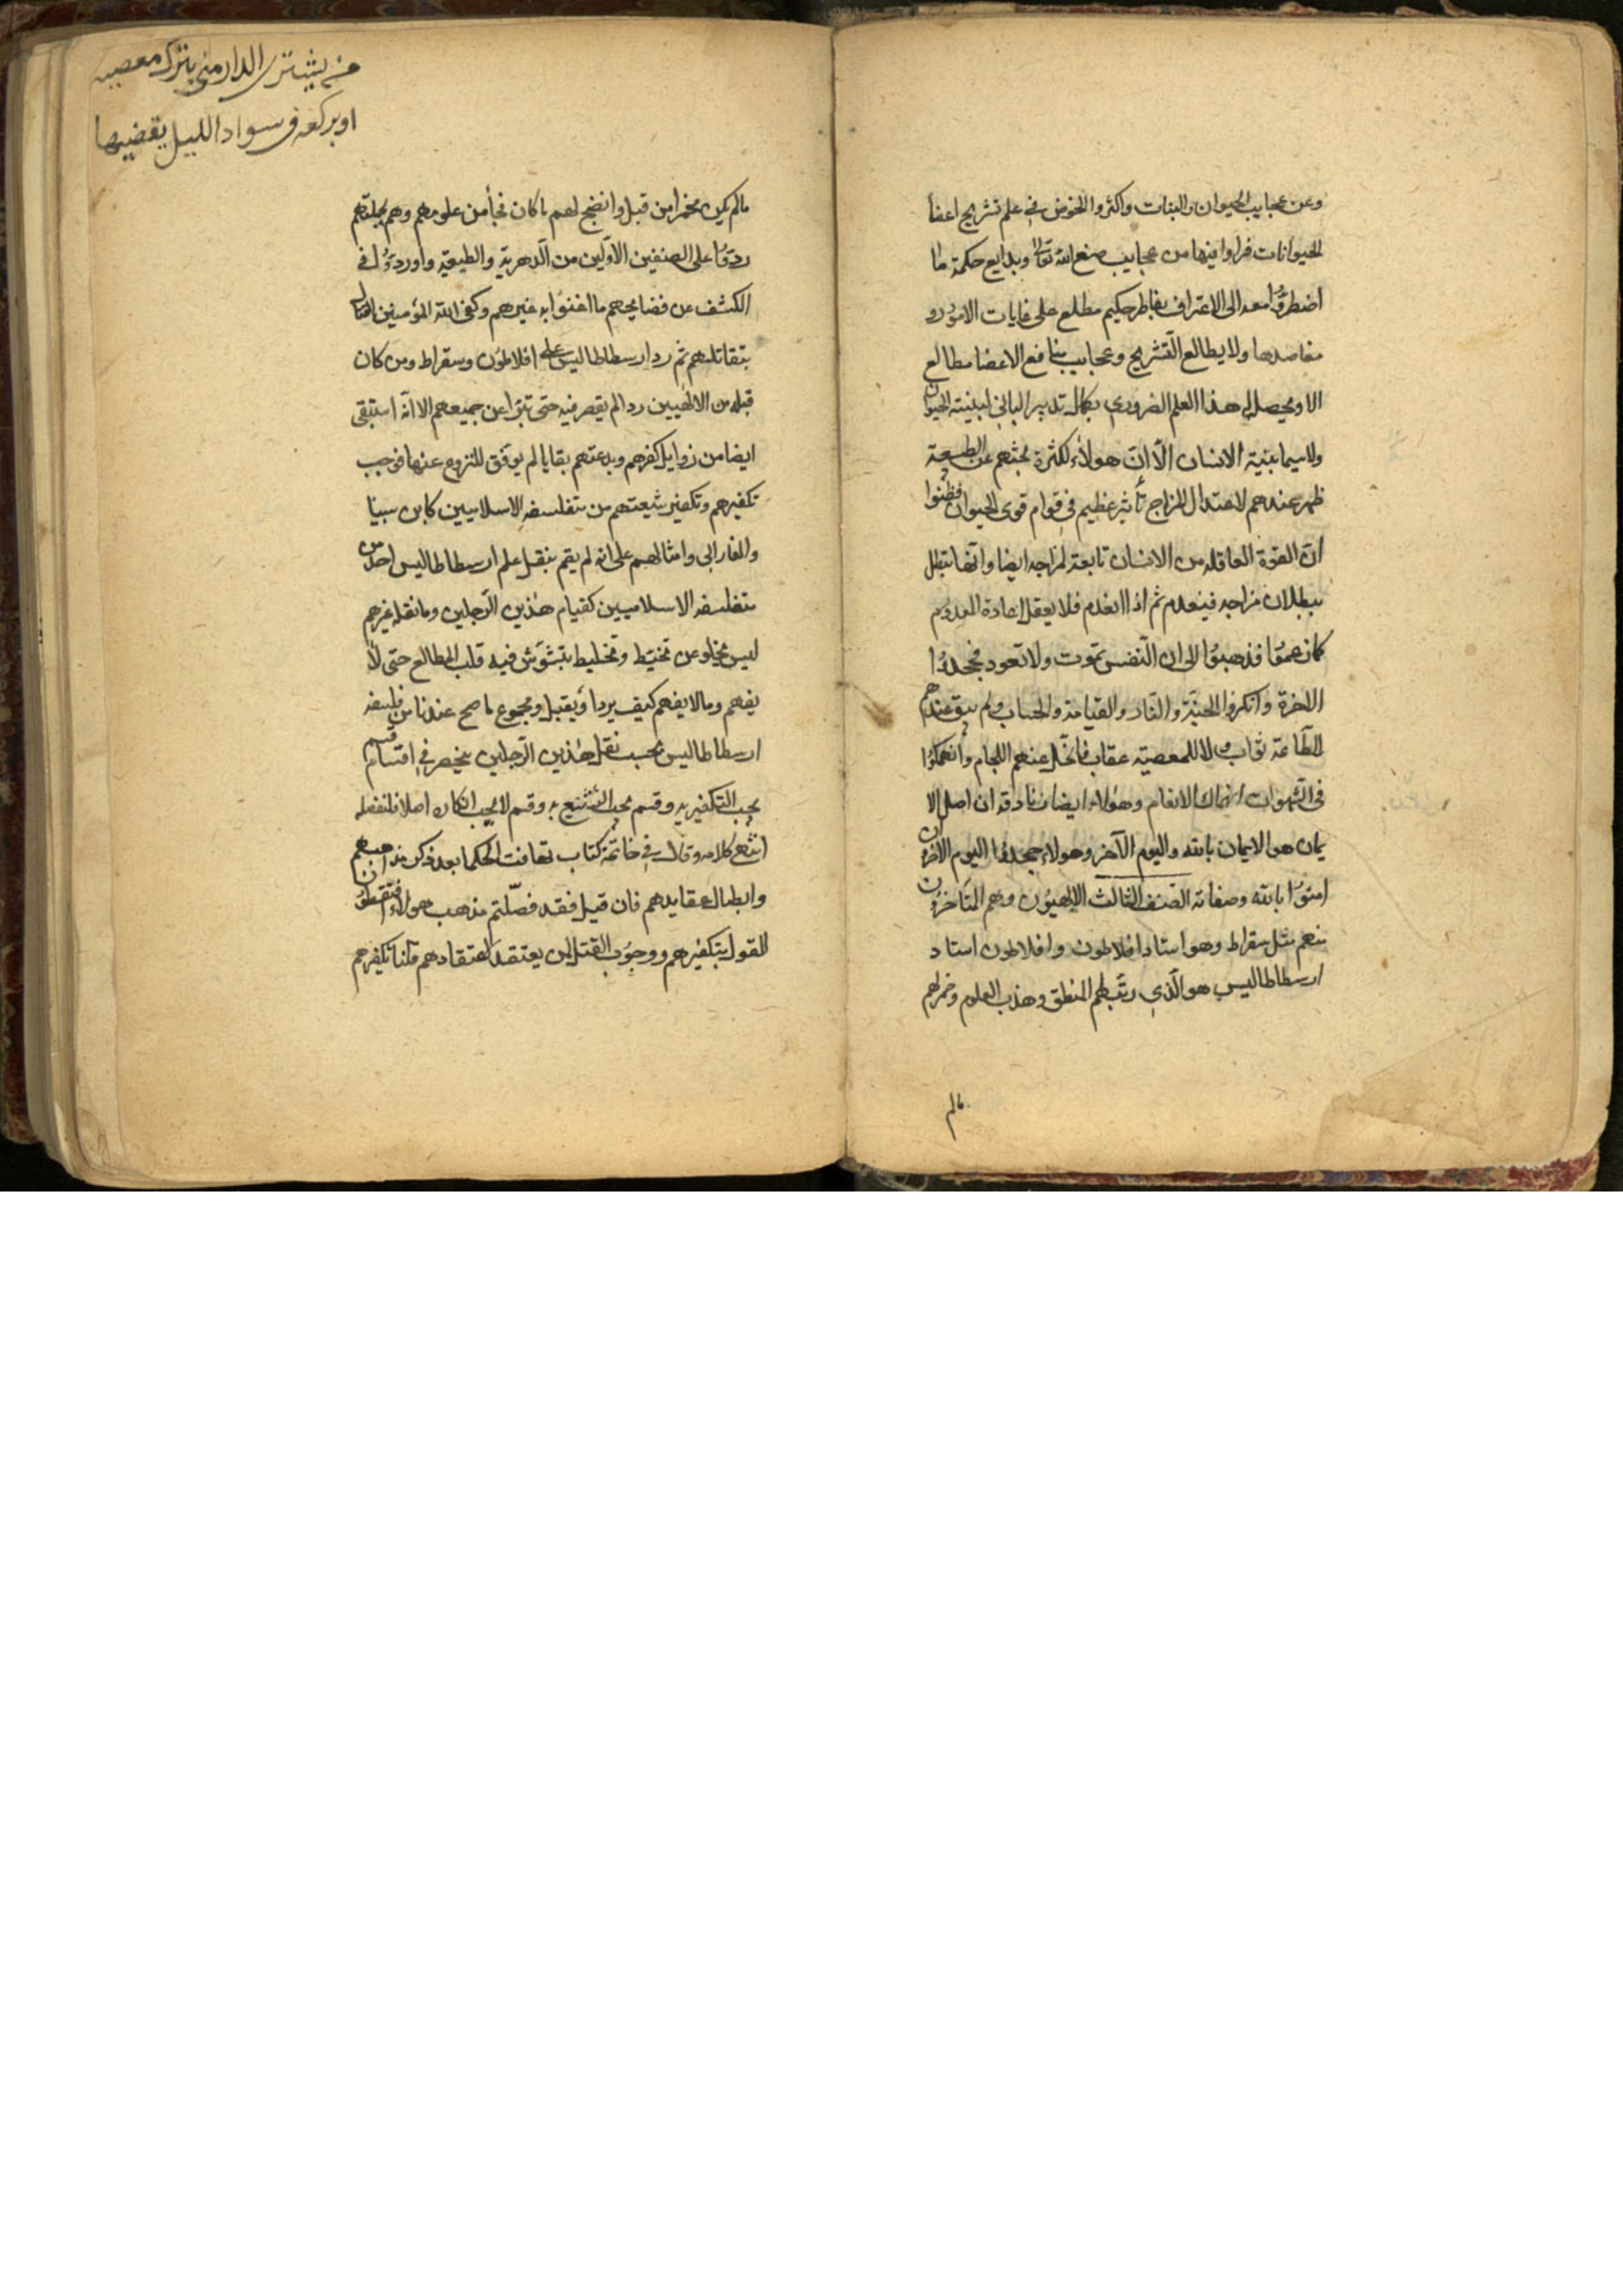 وعن عجايب الحيوان والنبات واكثروا الخوض في علم تشريح اعضا
الحيوانات فراوا فيها من عجايب صنع الله تعالى وبدايع حكمته ما
اضطروا معه الى الاعتراف بفاطر حكيم مطلع على غايات الامور و
مقاصدها ولا يطالع التشريح وعجايب منافع الاعضا مطالع
الا ويحصل له هذا العلم الضروري بكمال تدبير الباني لبنية الحيوان
ولا سيما بنية الانسان الا ان هولاء لكثرة بحثهم عن الطبيعة
ظهر عندهم لاعتدال المزاج تأثير عظيم في قوام قوى الحيوان فظنوا
ان القوة العاقله من الانسان تابعة لمزاجه ايضا وانها تبطل
ببطلان مزاجه فينعدم ثم اذا انعدم فلا يعقل اعادة المعدوم
كما زعموا فذهبوا الى ان النفس تموت ولا تعود فجحدوا
الاخرة وانكروا الجنة والنار والقيامة والحساب ولم يبق عندهم
للطاعة ثواب ولا للمعصية عقاب فانحل عنهم اللجام وانهمكوا
في الشهوات انهماك الانعام وهولاء ايضا زنادقه ان اصل الا
يمان هو الايمان بالله واليوم الآخر وهولاء جحدوا اليوم الاخر وان
امنوا بالله وصفاته الصنف الثالث الالهيون وهم المتاخرون
منهم مثل سقراط وهو استاد افلاطون وافلاطون استاد
ارسطاطاليس هو الذي رتب لهم المنطق وهذب العلوم وخمر لهم
مالم
من يشترى الدار منى بترك معصيه
او بركعه فى سواد الليل يقضيها
مالم يكن مخمرا من قبل وانضج لهم ما كان فجأ من علومهم وهم بجملتهم
ردوا على الصنفين الاولين من الدهرية والطبيعية واوردوا في
الكشف عن فضايحهم ما اغنوا به غيرهم وكفى الله المؤمنين القتال
بتقاتلهم ثم رد ارسطاطاليس على افلاطون وسقراط ومن كان
قبله من الالهيين ردا لم يقصر فيه حتى تبرا عن جميعهم الا انه استبقى
ايضا من زوايل كفرهم وبدعتهم بقايا لم يوفق للنزوع عنها فوجب
تكفيرهم وتكفير شيعتهم من متفلسفه الاسلاميين كابن سينا
والفارابى وامثالهم على انه لم يقم بنقل علم ارسطاطاليس احد من
متفلسفه الاسلاميين كقيام هذين الرجلين وما نقله غيرهم
ليس يخلو عن تخبط وتخليط يتشوش فيه قلب المطالع حتى لا
يفهم وما لا يفهم كيف يرد او يقبل ومجموع ما صح عندنا من فلسفه
ارسطاطاليس بحسب نقل هذين الرجلين ينحصر في اقسام قسم
يجب التكفير به وقسم يجب التشنيع به وقسم لا يجب انكاره اصلا فلنفصله
انتهى كلامه وقال في خاتمة كتاب تهافت الحكما بعد ذكر مذاهبهم
وابطال عقايدهم فان قيل فقد فصلتم مذهب هولاء افتقطعون
القول بتكفيرهم ووجوب القتل لمن يعتقد اعتقادهم قلنا تكفيرهم